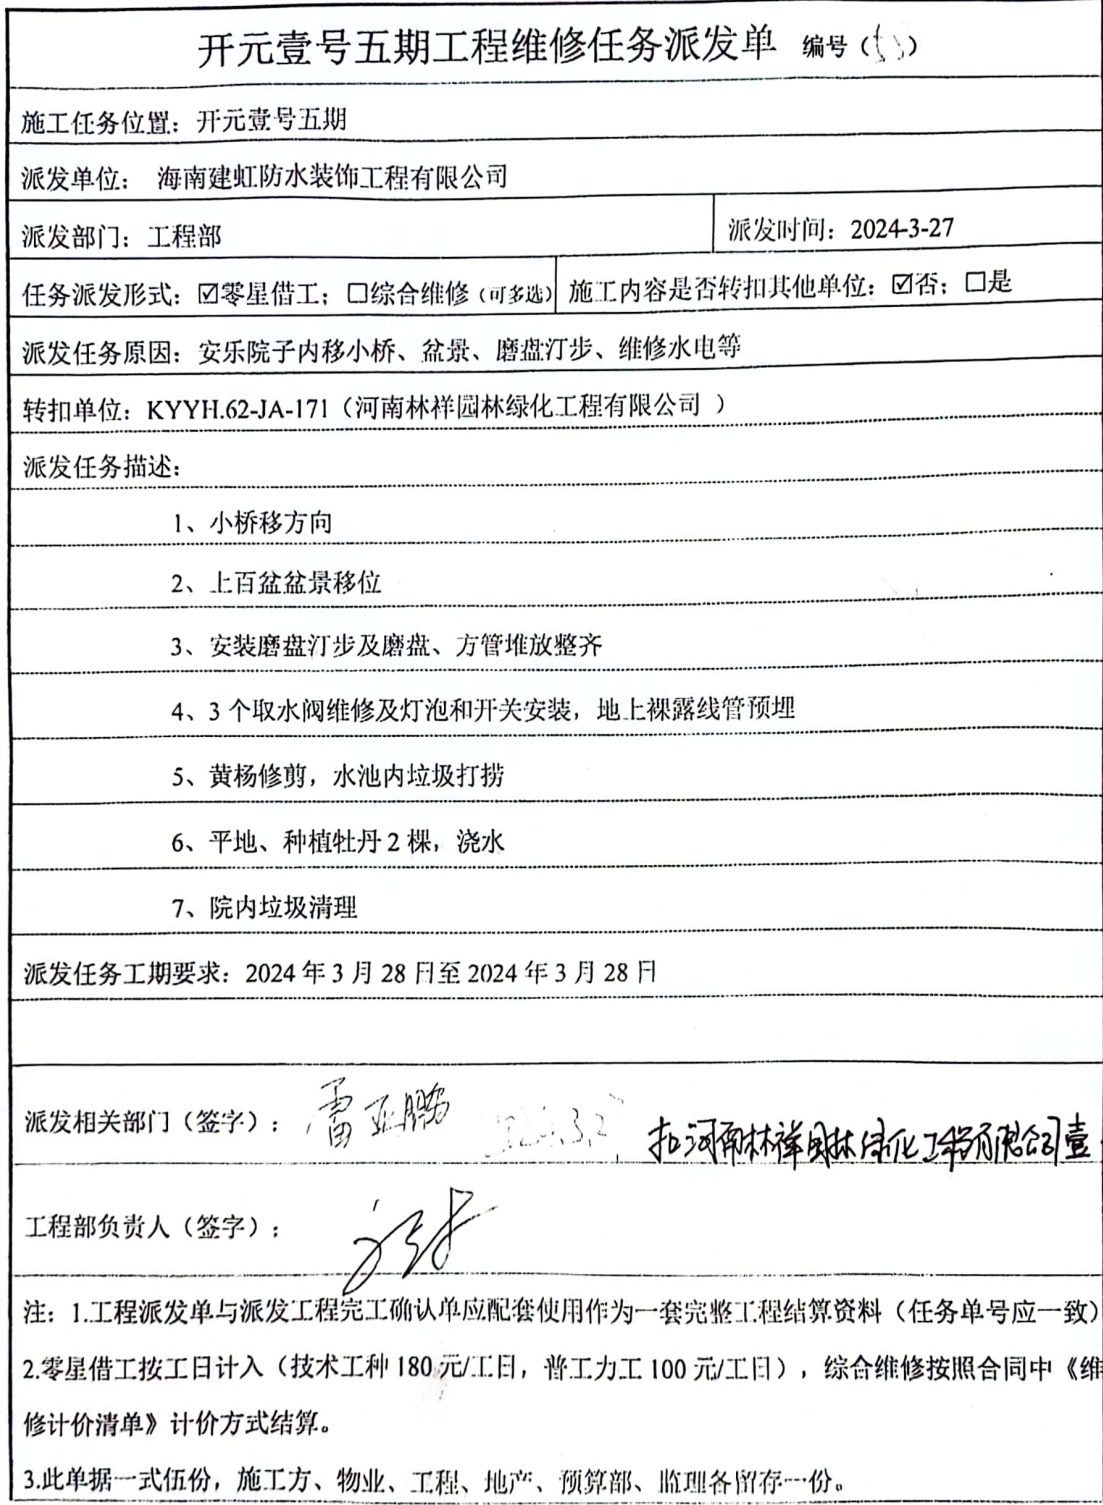 开元壹号五期工程维修任务派发单 编号（53）
施工任务位置：开元壹号五期
派发单位： 海南建虹防水装饰工程有限公司
派发部门：工程部 派发时间：2024-3-27
任务派发形式：☑零星借工；☐综合维修（可多选） 施工内容是否转扣其他单位：☑否；☐是
派发任务原因：安乐院子内移小桥、盆景、磨盘汀步、维修水电等
转扣单位：KYYH.62-JA-171（河南林祥园林绿化工程有限公司 ）
派发任务描述：
1、小桥移方向
2、上百盆盆景移位
3、安装磨盘汀步及磨盘、方管堆放整齐
4、3 个取水阀维修及灯泡和开关安装，地上裸露线管预埋
5、黄杨修剪，水池内垃圾打捞
6、平地、种植牡丹 2 棵，浇水
7、院内垃圾清理
派发任务工期要求：2024 年 3 月 28 日至 2024 年 3 月 28 日
派发相关部门（签字）： 雷亚鹏 扣河南林祥园林绿化工程有限公司壹
工程部负责人（签字）：
注：1.工程派发单与派发工程完工确认单应配套使用作为一套完整工程结算资料（任务单号应一致）
2.零星借工按工日计入（技术工种 180 元/工日，普工力工 100 元/工日），综合维修按照合同中《维
修计价清单》计价方式结算。
3.此单据一式伍份，施工方、物业、工程、地产、预算部、监理各留存一份。